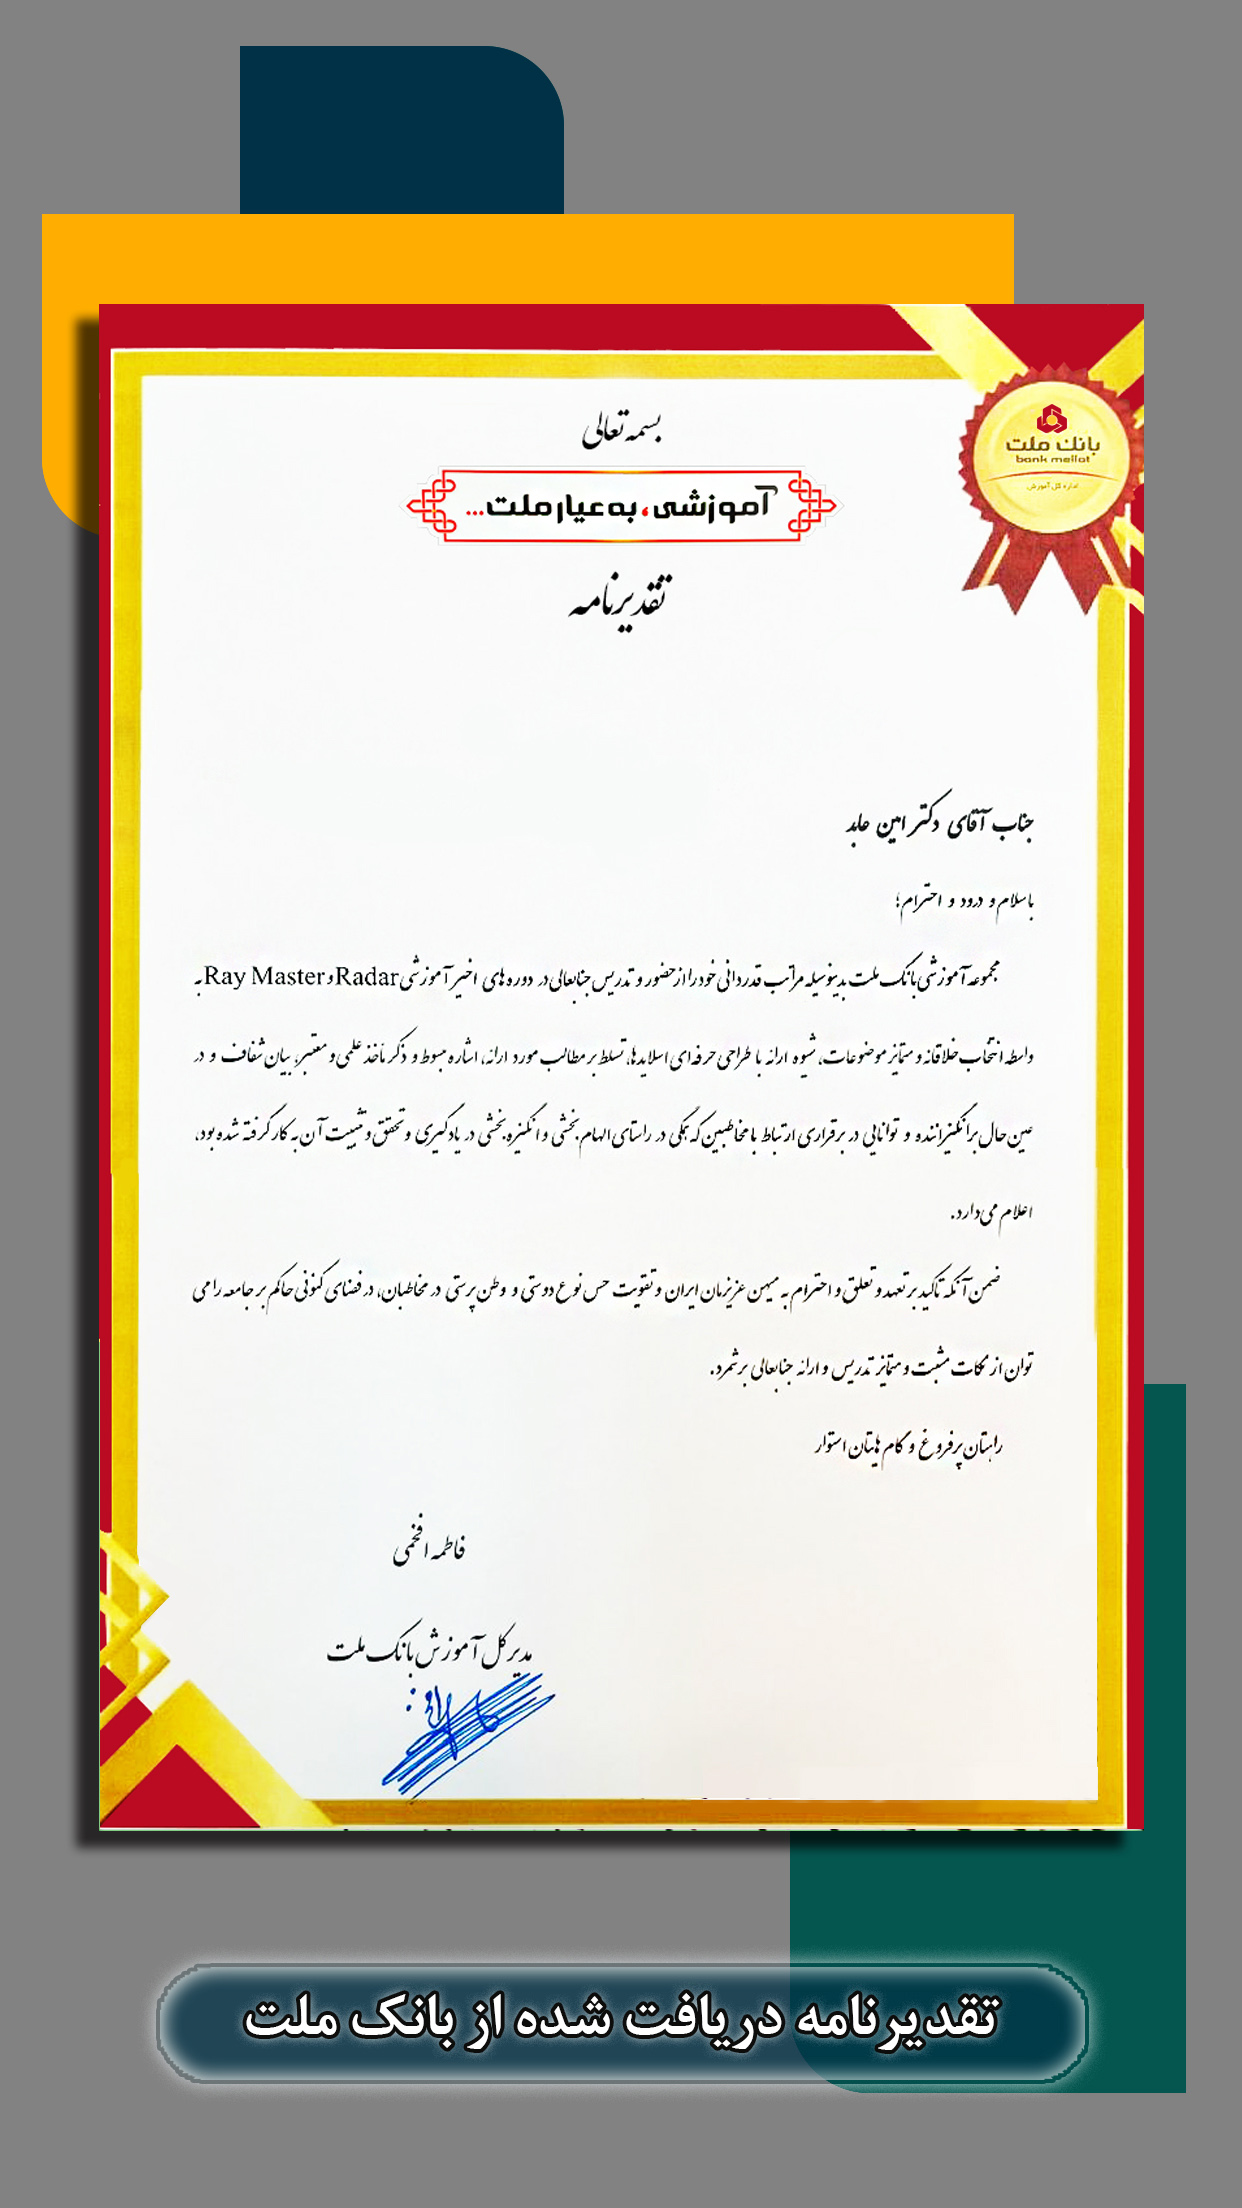 بسمه تعالی
آموزشی، به عیار ملت...
بانک ملت
bank mellat
اداره کل آموزش
تقدیرنامه
جناب آقای دکتر امین عابد
با سلام و درود و احترام؛
مجموعه آموزشی بانک ملت بدینوسیله مراتب قدردانی خود را از حضور و تدریس جنابعالی در دوره های اخیر آموزشی Radar و Ray Master به
واسطه انتخاب خلاقانه و متمایز موضوعات، شیوه ارائه با طراحی حرفه ای اسلایدها، تسلط بر مطالب مورد ارائه، اشاره مبسوط و ذکر مآخذ علمی و معتبر، بیان شفاف و در
عین حال برانگیزاننده و توانایی در برقراری ارتباط با مخاطبین که همگی در راستای الهام بخشی و انگیزه بخشی در یادگیری و تحقق و تثبیت آن به کار گرفته شده بود،
اعلام می دارد.
ضمن آنکه تاکید بر تعهد و تعلق و احترام به میهن عزیزمان ایران و تقویت حس نوع دوستی و وطن پرستی در مخاطبان، در فضای کنونی حاکم بر جامعه را می
توان از نکات مثبت و متمایز تدریس و ارائه جنابعالی برشمرد.
راهتان پرفروغ و گام هایتان استوار
فاطمه افخمی
مدیر کل آموزش بانک ملت
تقدیرنامه دریافت شده از بانک ملت